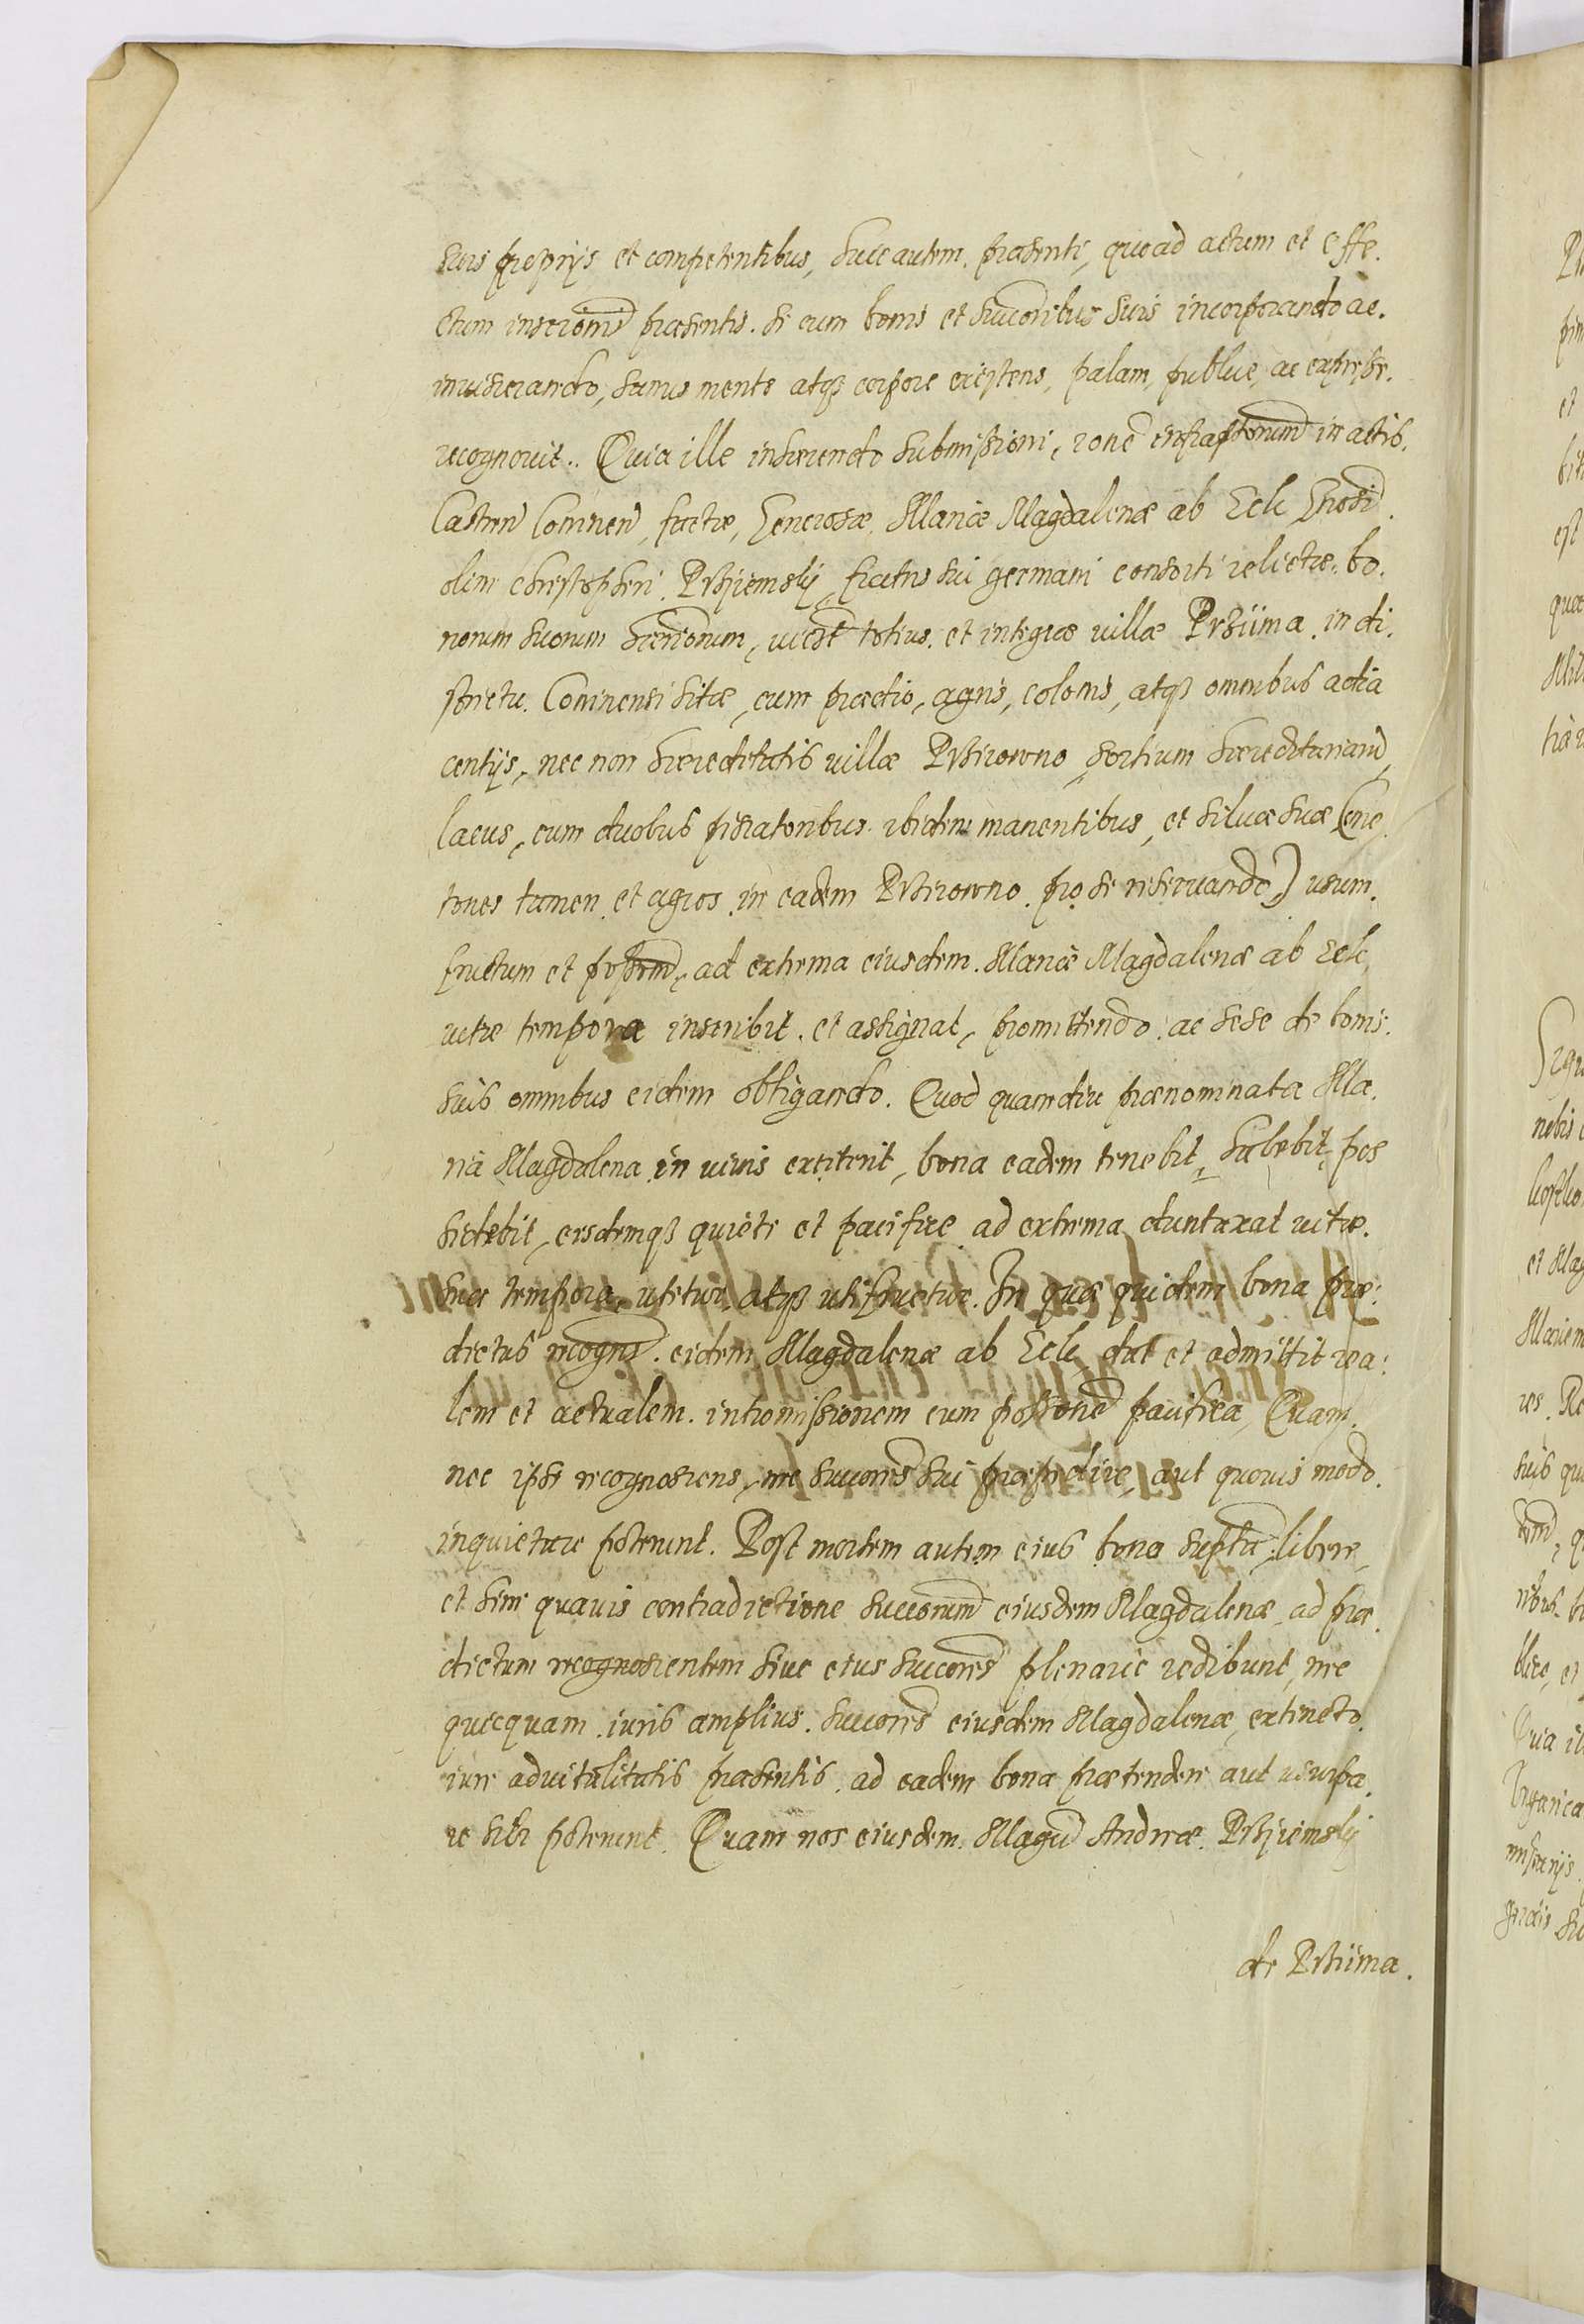 suis proprijs et competentibus, huic autem praesenti, quoad actum et effe.
ctum inscriõnis praesentis. se cum bonis et succoribus suis incorporando ac.
inviscerando, sanus mente atq3 corpore existens, palam, publice, ac expresse.
recognovit. Quia ille inhaerendo submissioni, rone infrascptorum in actis.
Castren Coninen, factae, Generosae Mariae Magdalenae ab Eck Gnosi
olim Christopheri Przyiemsky, fratris sui germani consorti relictae. bo.
norum suorum haeredum, vicest totius. et integrae villae Przÿima. in di.
strictu. Coninensi sitae, cum praedio, agris, colonis, atq3 omnibus adia
centijs, nec non haereditatis villae Przirowno, sortium haereditariarum,
lacus, cum duobus piscatoribus. ibidem manentibus, et siluae suae
tones tamen et agros in eadem Przirowno. pro se reseruando) usum.
fructum et possem, ad extrema eiusdem. Mariae Magdalenae ab Eck
vitae tempora inscribit. et assignat, promittendo. ac sese de bonis.
suis omnibus eidem obligando. Quod quamdiu praenominata Ma.
ria Magdalena in vivis extiterit, bona eadem tenebit, habebit, pos
sidebit, eisdemq3 quiete et pacifice ad extrema duntaxat vitae.
suae tempora utetur, atq3 utifruetur. In quae quidem bona prae:
dictus recogns. eidem Magdalenae ab Eck dat et admittit rea:
lem et actualem. intromissionem cum possone pacifica, Quam.
nec ipse recognoscens, nec succores sui praepedire, aut quovis modo.
inquietare poterunt. Post mortem autem eius bona supta, libere,
et sine quavis contradictione succorum eiusdem Magdalenae, ad prae.
dictum recognoscentem sive eius succores plenarie redibunt, nec
quicquam. iuris amplius. succores eiusdem Magdalenae, extincto.
iure advitalitatis praesentis. ad eadem bona praetendere aut usurpa.
re sibi poterunt. Quam nos eiusdem. Magci Andreae. Przyiemsky
de Przÿima.